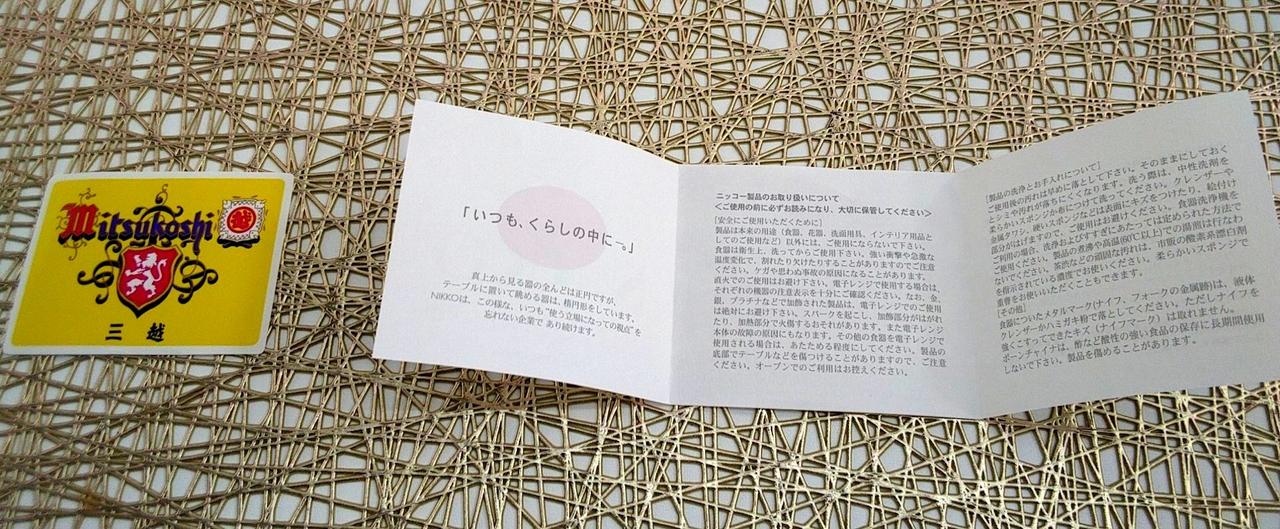 Mitsukoshi
三越
「いつも、くらしの中に〜。」
真上から見る器の全んどは正円ですが、
テーブルに置いて眺める器は、楕円形をしています。
NIKKOは、この様な、いつも"使う立場になっての視点"を
忘れない企業で あり続けます。
ニッコー製品のお取り扱いについて
＜ご使用の前に必ずお読みになり、大切に保管してください＞
[安全にご使用いただくために]
製品は本来の用途（食器、花器、洗面用具、インテリア用品と
してのご使用など）以外には、ご使用にならないで下さい。
食器は衛生上、洗ってからご使用下さい。強い衝撃や急激な
温度変化で、割れたり欠けたりすることがありますのでご注意
ください。ケガや思わぬ事故の原因になることがあります。
直火でのご使用はお避け下さい。電子レンジで使用する場合は、
それぞれの機器の注意表示を十分にご確認ください。なお、金、
銀、プラチナなどで加飾された製品は、電子レンジでのご使用
は絶対にお避け下さい。スパークを起こし、加飾部分がはがれ
たり、加熱部分で火傷するおそれがあります。また電子レンジ
本体の故障の原因にもなります。その他の食器を電子レンジで
使用される場合は、あたためる程度にしてください。製品の
底部でテーブルなどを傷つけることがありますので、ご注意
ください。オーブンでのご利用はお控えください。
[製品の洗浄とお手入れについて]
ご使用後の汚れは早めに落として下さい。そのままにしておく
とシミや汚れが落ちにくくなります。洗う際は、中性洗剤を
柔らかいスポンジか布につけて洗ってください。クレンザーや
金属タワシ、硬いスポンジなどは表面にキズをつけたり、絵付け
部分がはげますので、ご使用はお避けください。食器洗浄機を
ご利用の場合、洗浄およびすすぎにあたっては定められた方法で
ご使用ください。製品の煮沸や高温(60℃以上)での湯煎は行なわ
ないでください。茶渋などの頑固な汚れは、市販の酸素系漂白剤
を指示されている濃度でお使いください。柔らかいスポンジで
重曹をお使いいただくこともできます。
[その他]
食器についたメタルマーク(ナイフ、フォークの金属跡)は、液体
クレンザーかハミガキ粉で落としてください。ただしナイフを
強くこすってできたキズ（ナイフマーク）は取れません。
ボーンチャイナは、酢など酸性の強い食品の保存に長期間使用
しないで下さい。製品を傷めることがあります。